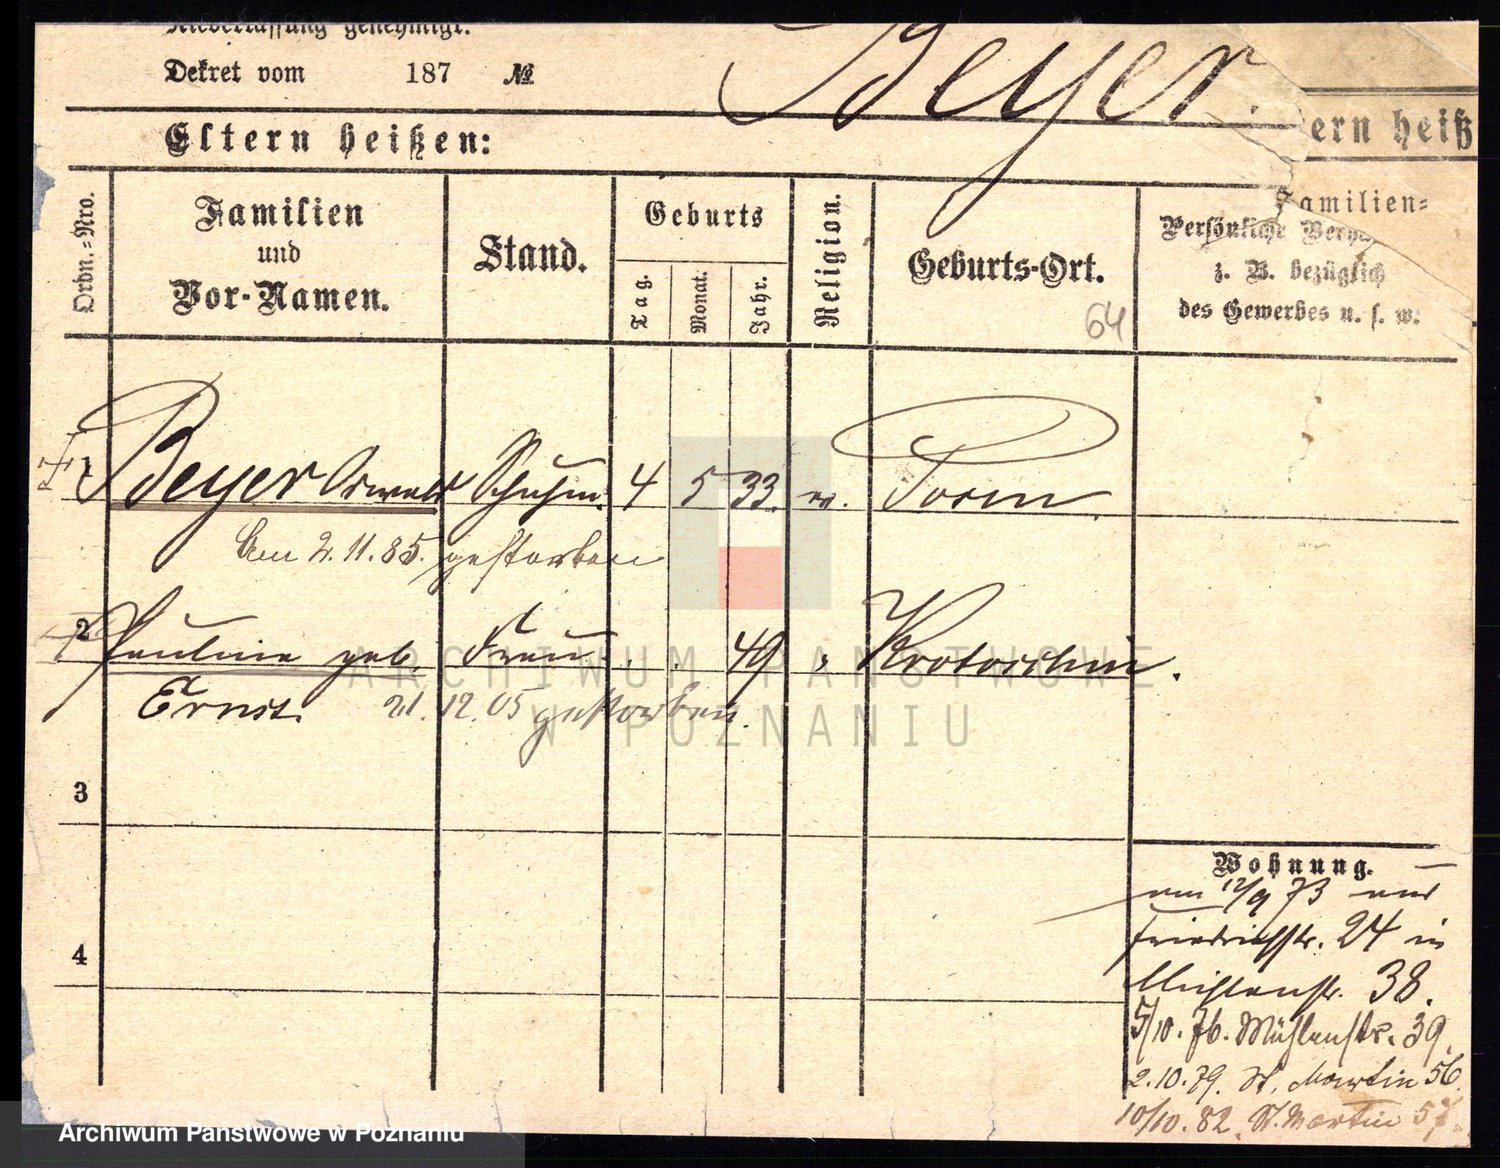 Niederlassung genehmigt.
Dekret vom 187 №
Beyer.
Eltern heißen:
ern heiß
Ordn.-Nro.
Familien
und
Vor-Namen.
Stand.
Geburts
Tag.
Monat.
Jahr.
Religion.
Geburts-Ort.
64
Familien-
Persönliche
z. B. bezüglich
des Gewerbes u. s. w.
1 Beyer Oswald Schuhm. 4 5 33.
Am 2.11.85. gestorben
2 Pauline geb. Frau . . 49 " Krotoschin.
Ernst. 21.12.05 gestorben.
3
4
Wohnung.
am 12/9 73 aus
Friedrichstr. 24 in
Mühlenstr. 38.
5/10. 76. Mühlenstr. 39.
2.10.79. St. Martin 56.
10/10. 82. St. Martin 57.
ARCHIWUM PAŃSTWOWE
W POZNANIU
Archiwum Państwowe w Poznaniu